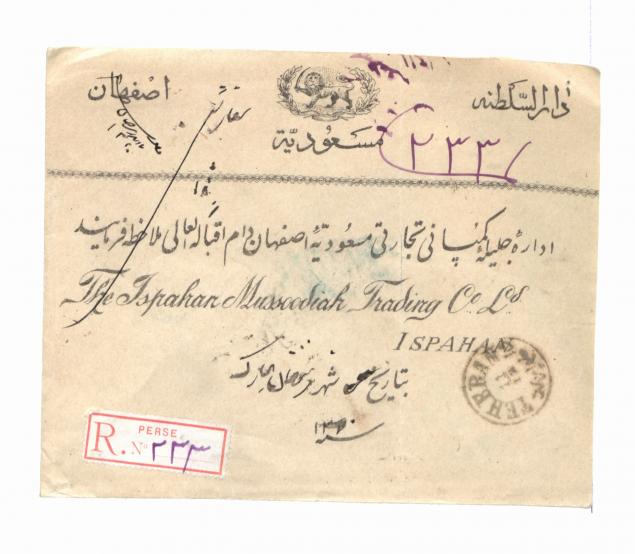 دارالسلطنه اصفهان
مسعودیّة
۲۳۳
ادارهٔ جلیلهٔ کمپانی تجارتی مسعودیهٔ اصفهان دام اقباله العالی ملاحظه فرمایند
The Ispahan Mussoodiah Trading Co. Ld.
ISPAHAN
TEHERAN
بتاریخ شهر رمضان مبارک
سنه
PERSE
R. No ۲۳۳